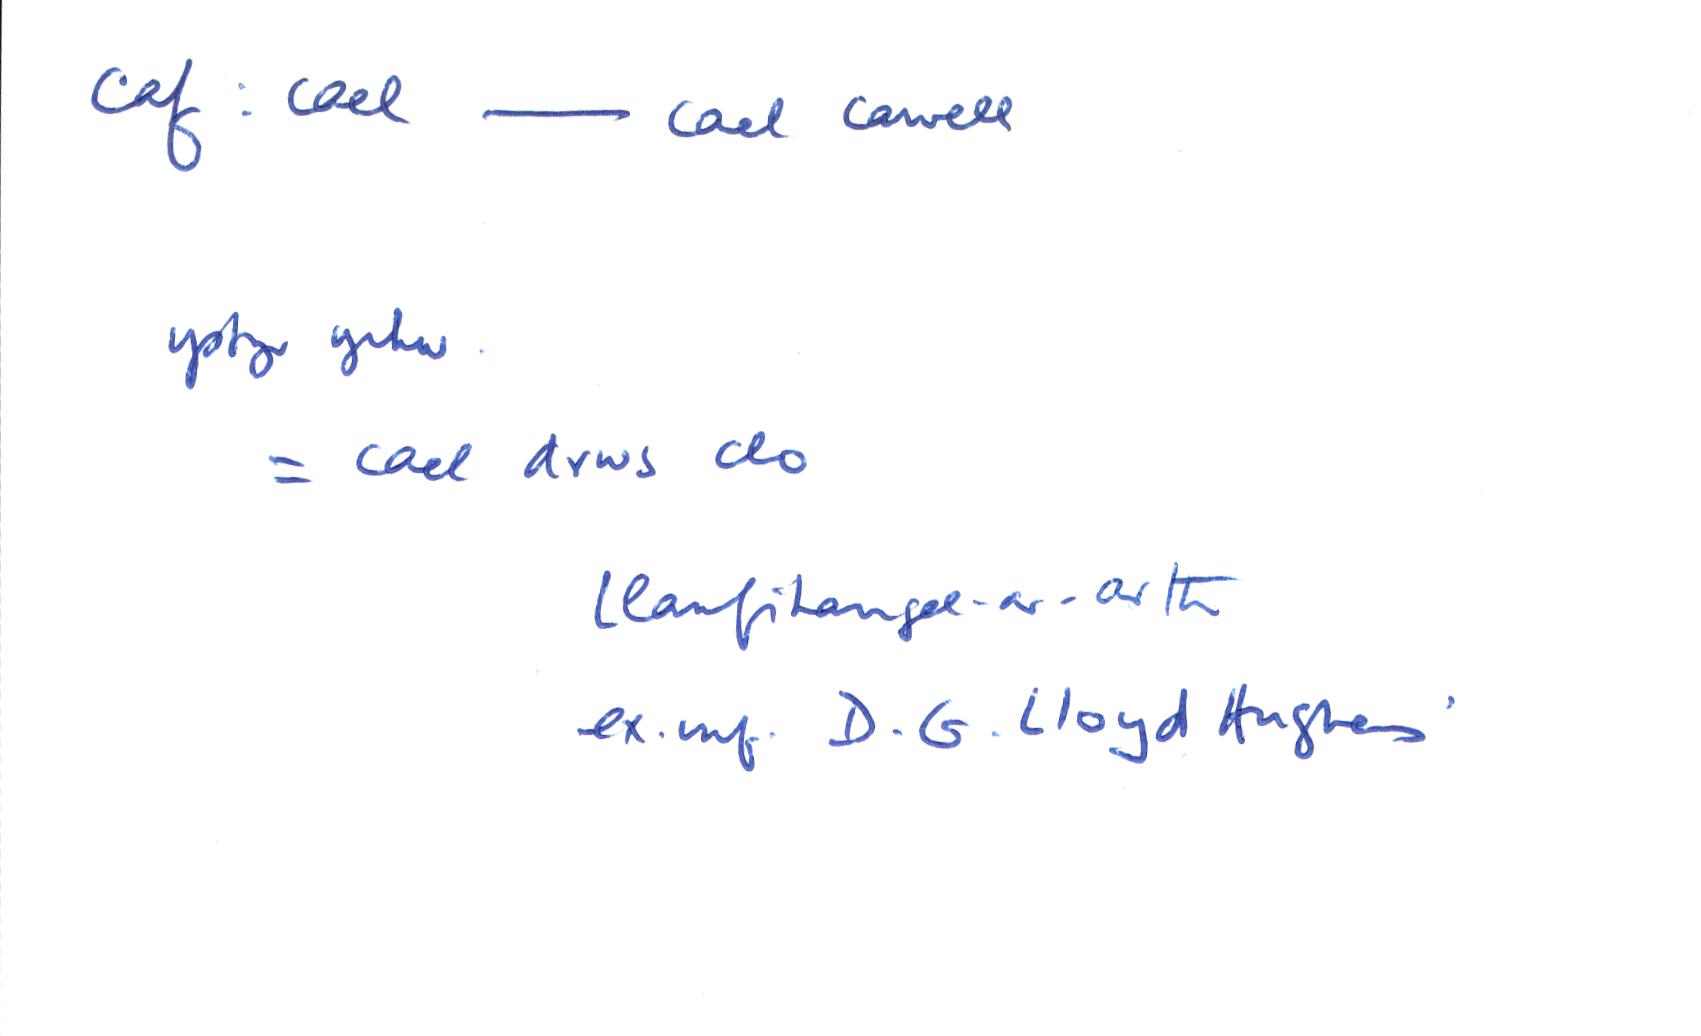 caf : cael — cael cawell
ystyr
= cael drws clo
Llanfihangel-ar-arth
ex. inf. D. G. Lloyd Hughes